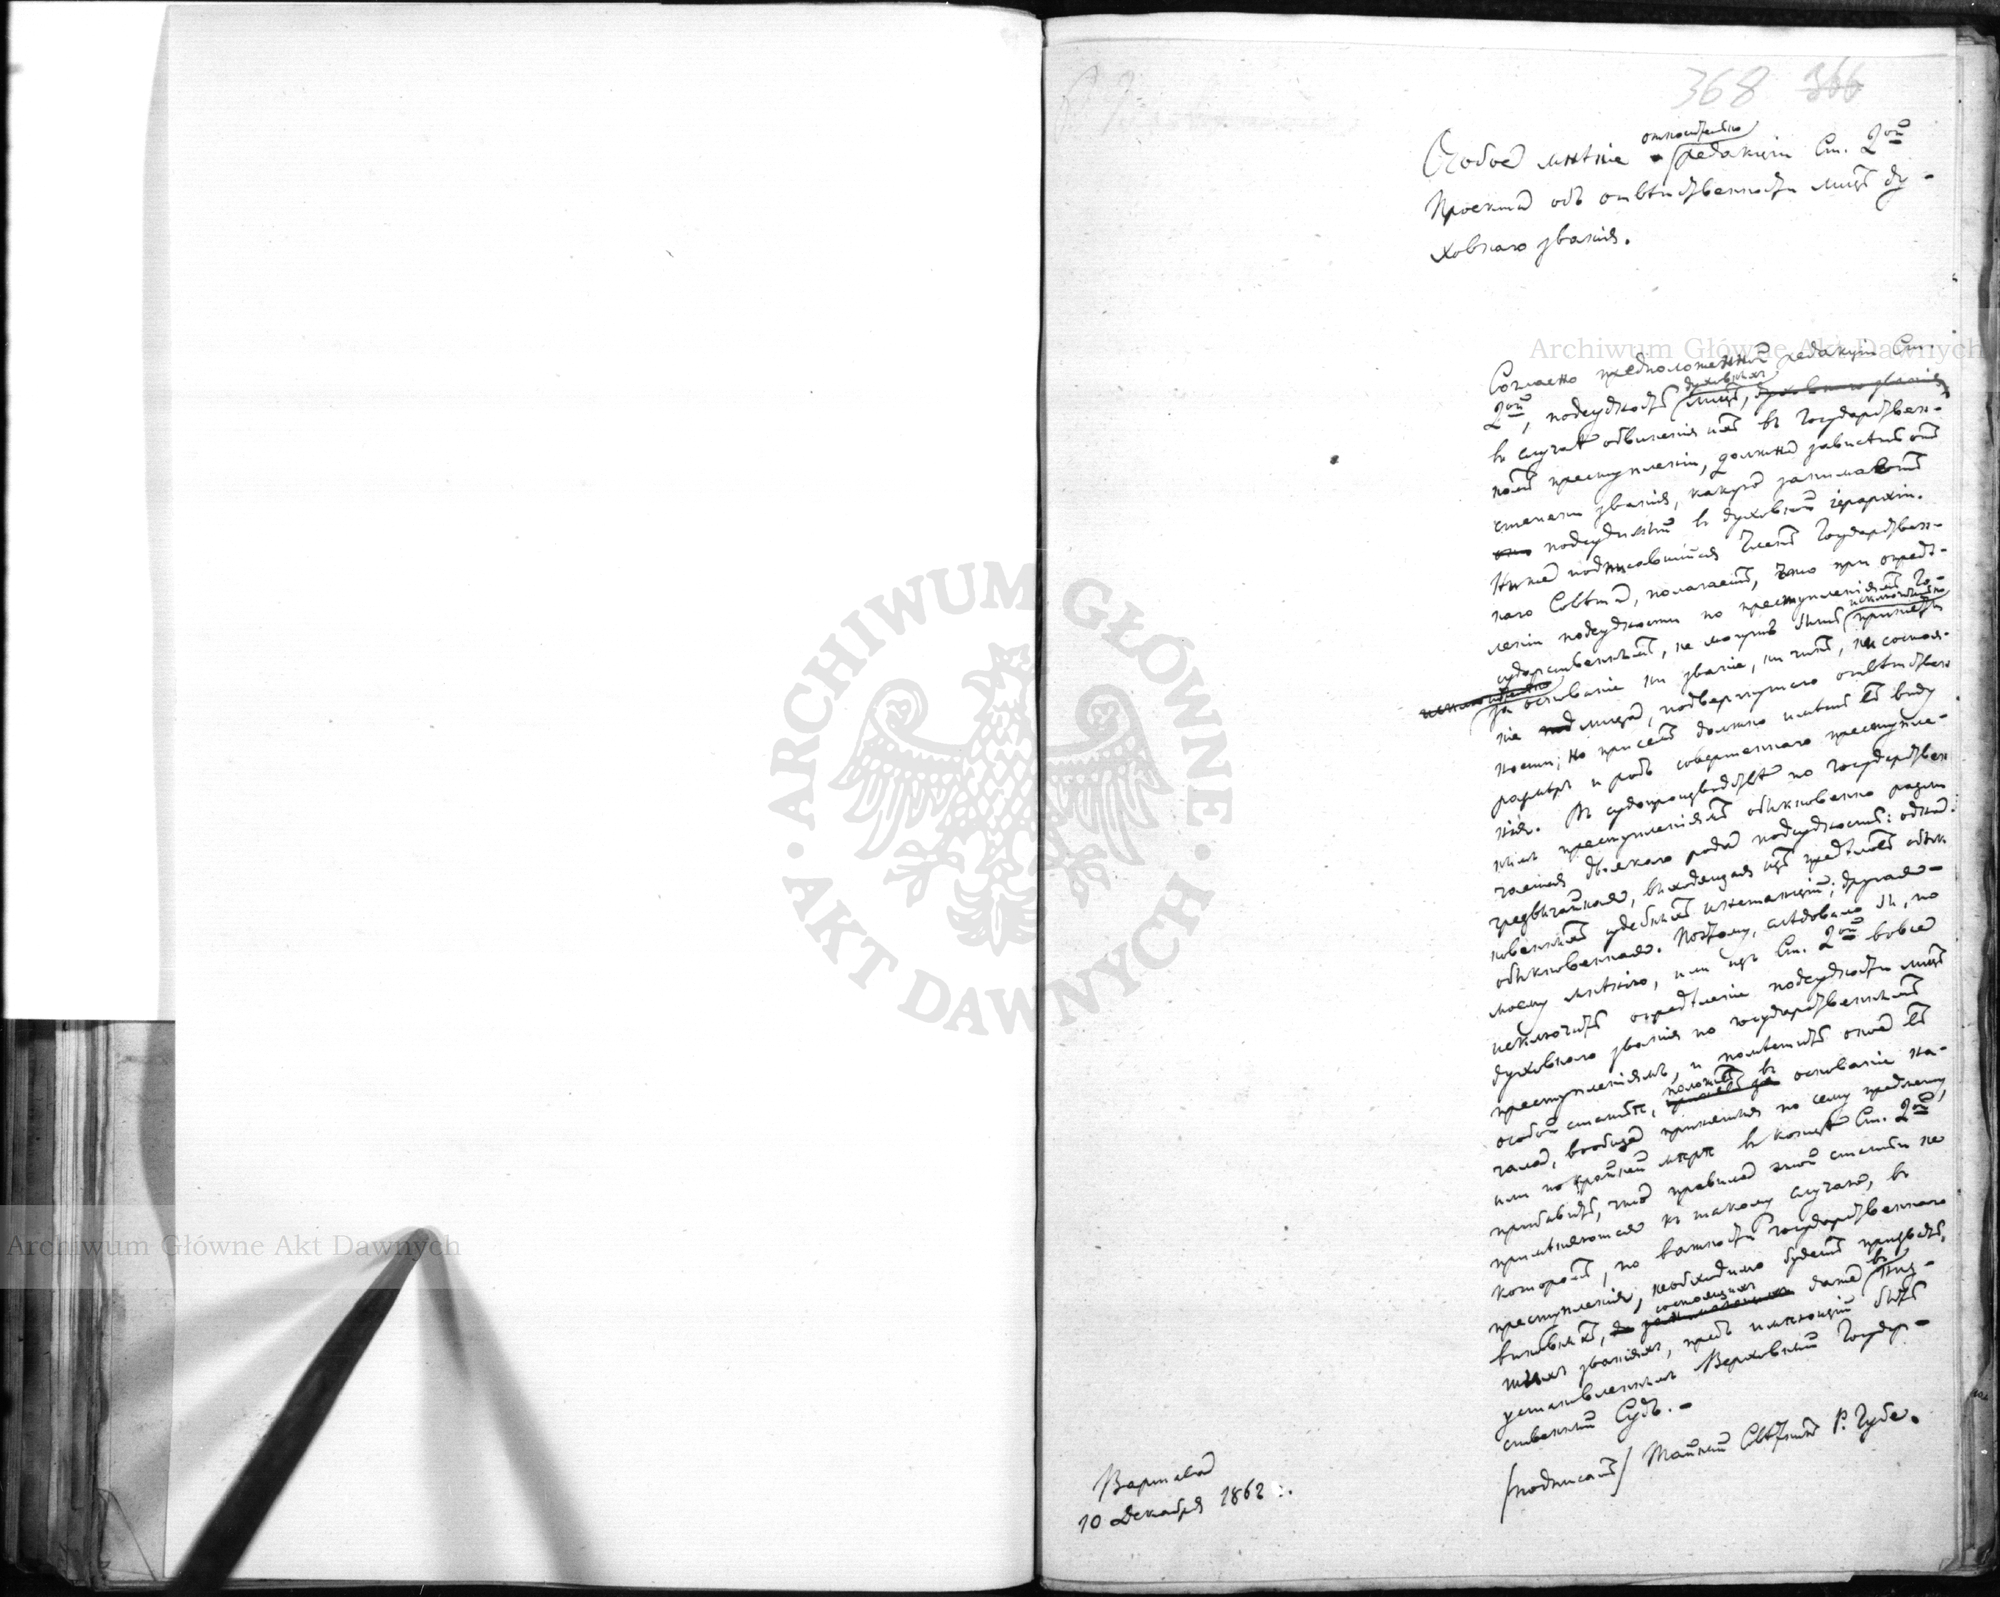 368 366
Особое мнѣніе относительно редакціи Ст. 2ой
Проекта объ отвѣтственности лицъ ду-
ховнаго званія.
Archiwum Główne Akt Dawnych
Согласно предположенной редакціи Ст.
2ой, подсудность духовныхъ лицъ, духовнаго званія
въ случаѣ обвиненія ихъ въ Государствен-
номъ преступленіи, должна зависѣть отъ
степени званія, какую занимаетъ
подсудимый въ духовной іерархіи.
Ниже подписавшійся Членъ Государствен-
наго Совѣта, полагаетъ, что при опредѣ-
леніи подсудности по преступленіямъ Го-
сударственнымъ, не могутъ быть исключительно приняты
исключительно за основаніе ни званіе, ни чинъ, ни состоя-
ніе лица, подвергнутаго отвѣтствен
ности; но при семъ должно имѣть въ виду
размѣръ и родъ совершеннаго преступле-
нія. Въ судопроизводствѣ по Государствен
нымъ преступленіямъ обыкновенно разли
чается двоякаго рода подсудность: одна
чрезвычайная, выходящая изъ предѣловъ обык
новенныхъ судебныхъ инстанцій; другая
обыкновенная. Поэтому, слѣдовало бы, по
моему мнѣнію, или изъ Ст. 2ой вовсе
исключить опредѣленіе подсудности лицъ
духовнаго званія по государственнымъ
преступленіямъ, и помѣстить оное въ
особой статьѣ, положивъ въ основаніе на-
чала, вообще принятыя по сему предмету
или по крайней мѣрѣ въ концѣ Ст. 2ой,
прибавить, что правила этой статьи не
примѣняются къ такому случаю, въ
которомъ, по важности государственнаго
преступленія, необходимо будетъ призвать,
виновныхъ, состоящихъ даже въ низ-
шихъ званіяхъ, предъ имѣющій быть
установленнымъ Верховный Государ-
ственный Судъ.-
/подписалъ/ Тайный Совѣтникъ Р. Губе.
Варшава
10 Декабря 1862
ARCHIWUM GŁÓWNE
AKT DAWNYCH
Archiwum Główne Akt Dawnych